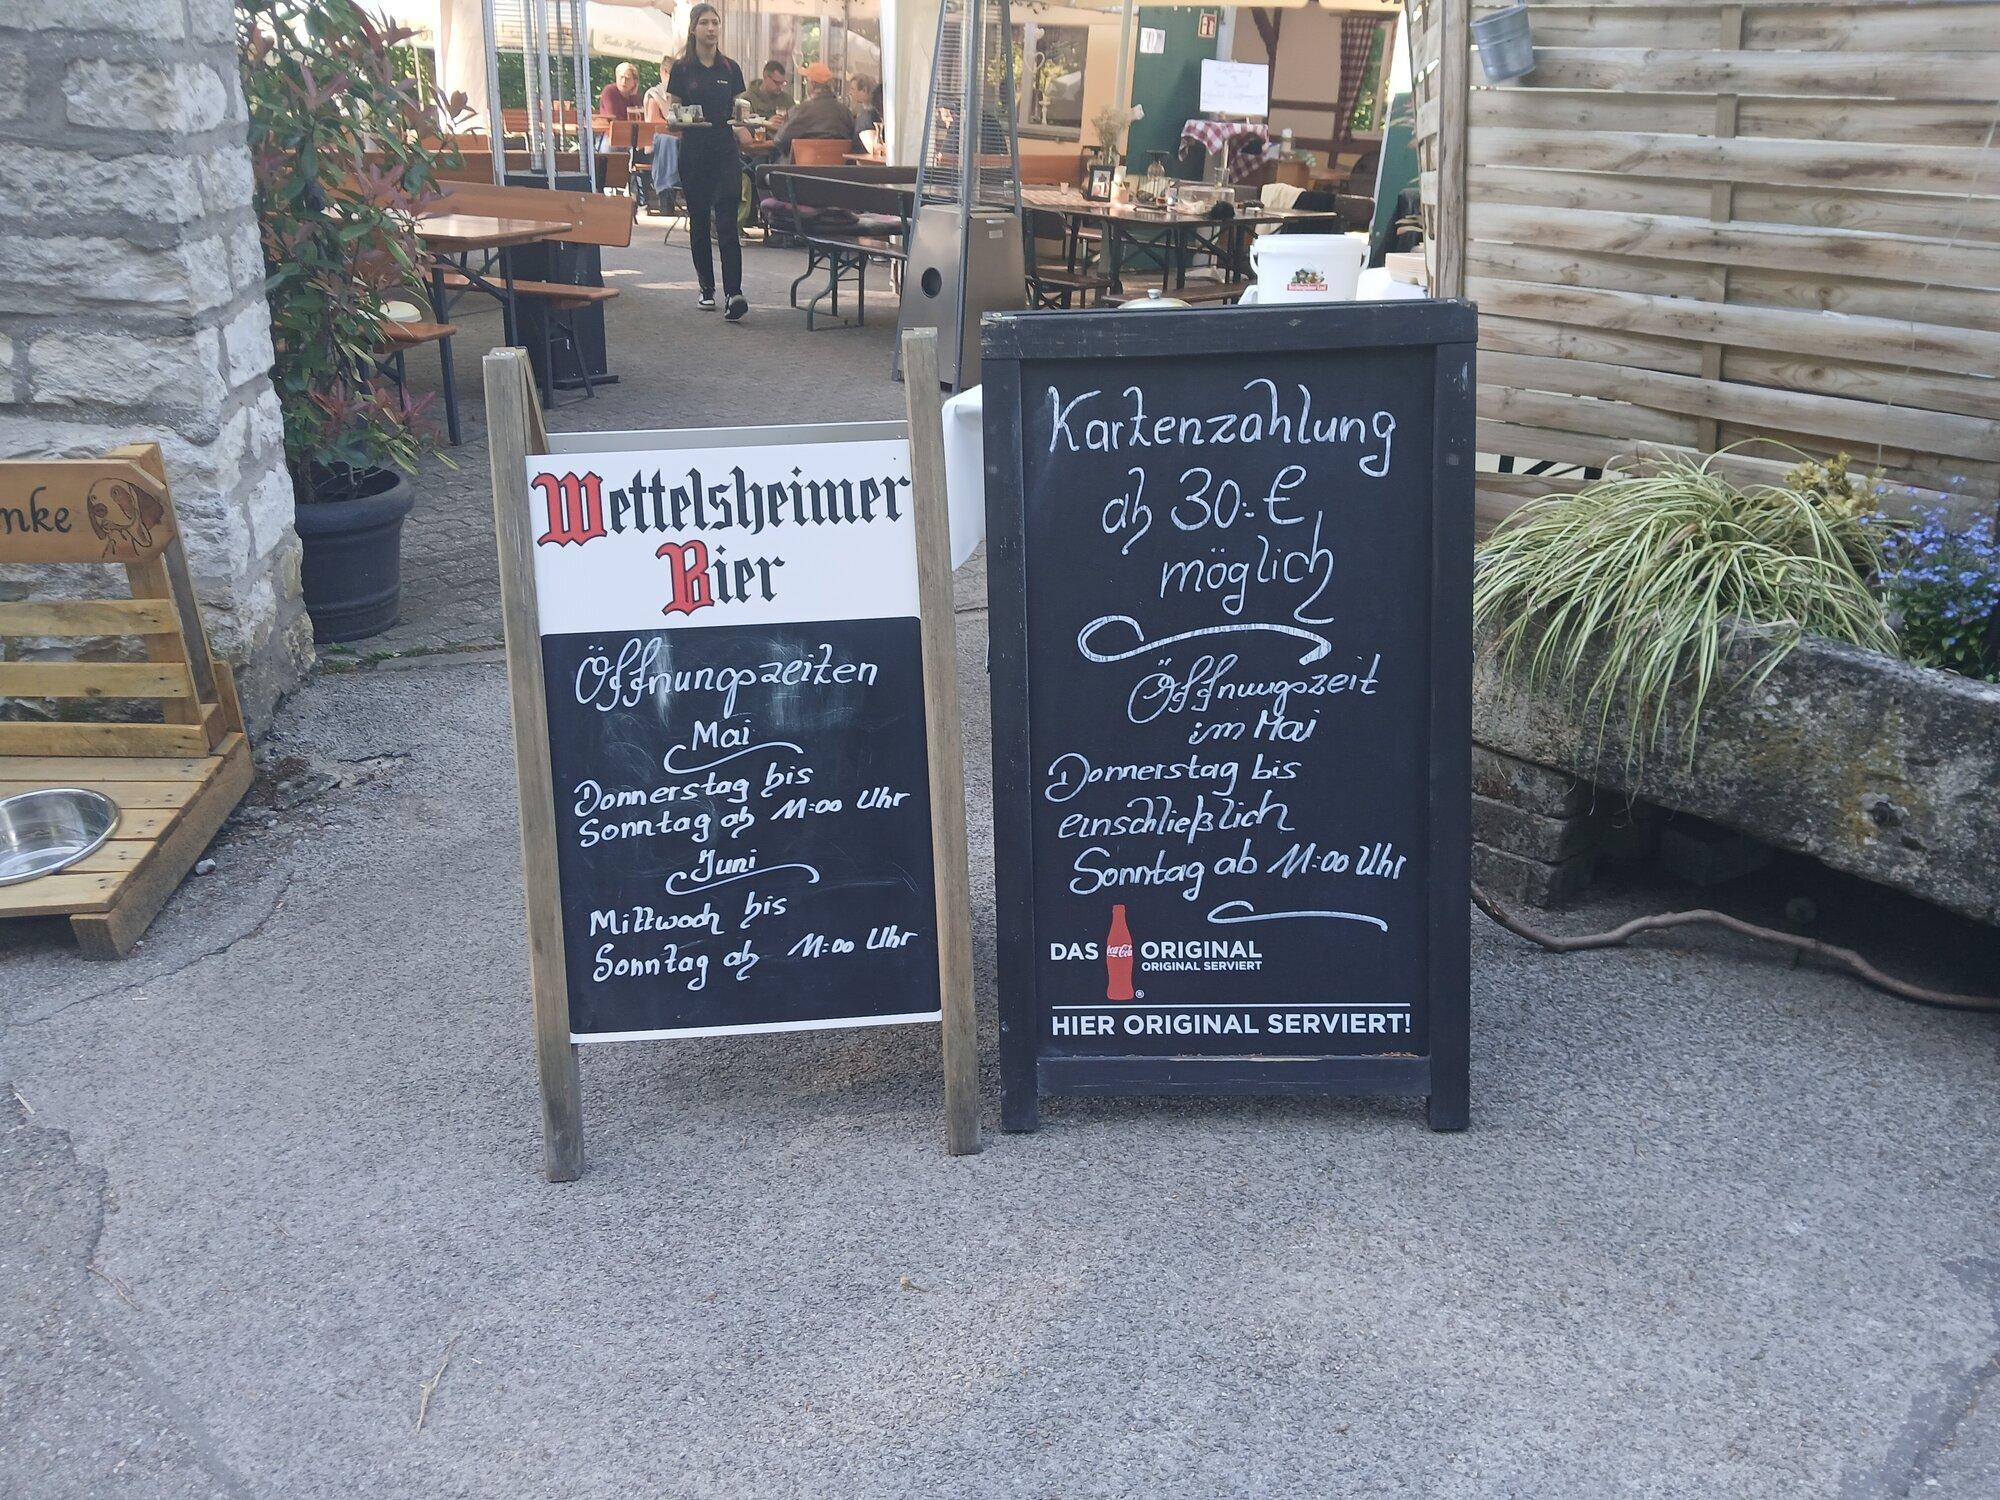 nke
Wettelsheimer
Bier
Öffnungszeiten
Mai
Donnerstag bis
Sonntag ab 11:00 Uhr
Juni
Mittwoch bis
Sonntag ab 11:00 Uhr
Kartenzahlung
ab 30.-€
möglich
Öffnungszeit
im Mai
Donnerstag bis
einschließlich
Sonntag ab 11:00 Uhr
DAS Coca-Cola ORIGINAL
ORIGINAL SERVIERT
HIER ORIGINAL SERVIERT!